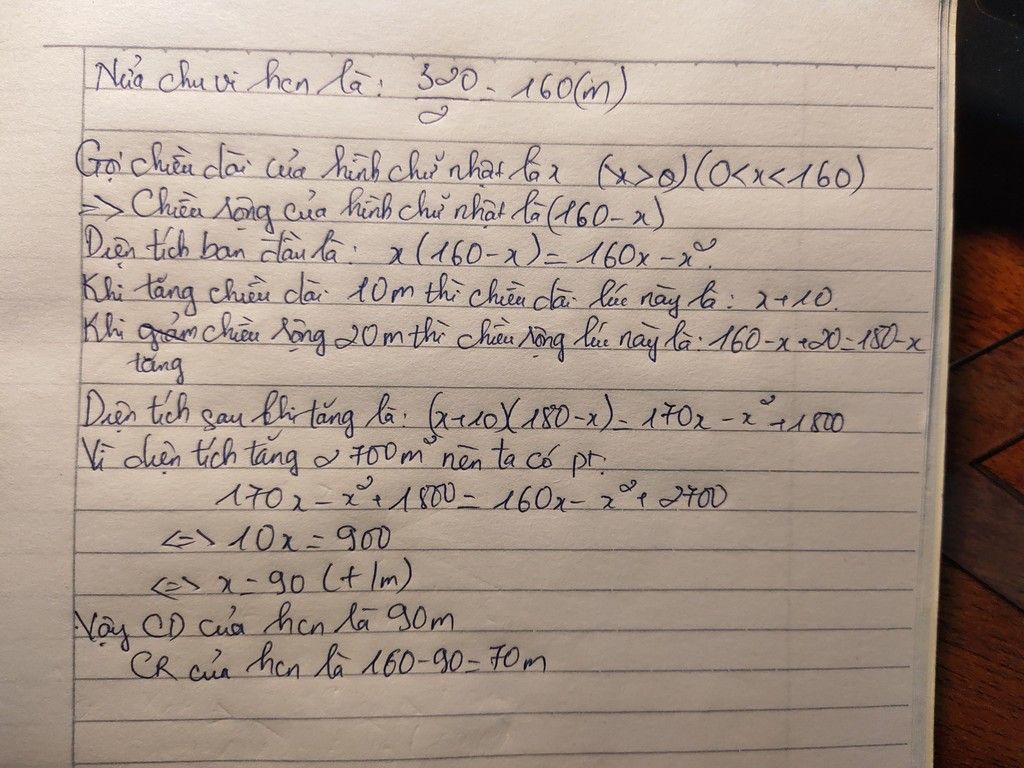 Nửa chu vi hcn là: 320/2 = 160(m)
Gọi chiều dài của hình chữ nhật là x (x>0)(0<x<160)
=> Chiều rộng của hình chữ nhật là (160-x)
Diện tích ban đầu là: x(160-x)=160x-x².
Khi tăng chiều dài 10m thì chiều dài lúc này là: x+10.
Khi giảm chiều rộng 20m thì chiều rộng lúc này là: 160-x+20=180-x
tăng
Diện tích sau khi tăng là: (x+10)(180-x)=170x-x²+1800
Vì diện tích tăng 2700m² nên ta có pt:
170x-x²+1800=160x-x²+2700
<=> 10x=900
<=> x=90 (t/m)
Vậy CD của hcn là 90m
CR của hcn là 160-90=70m